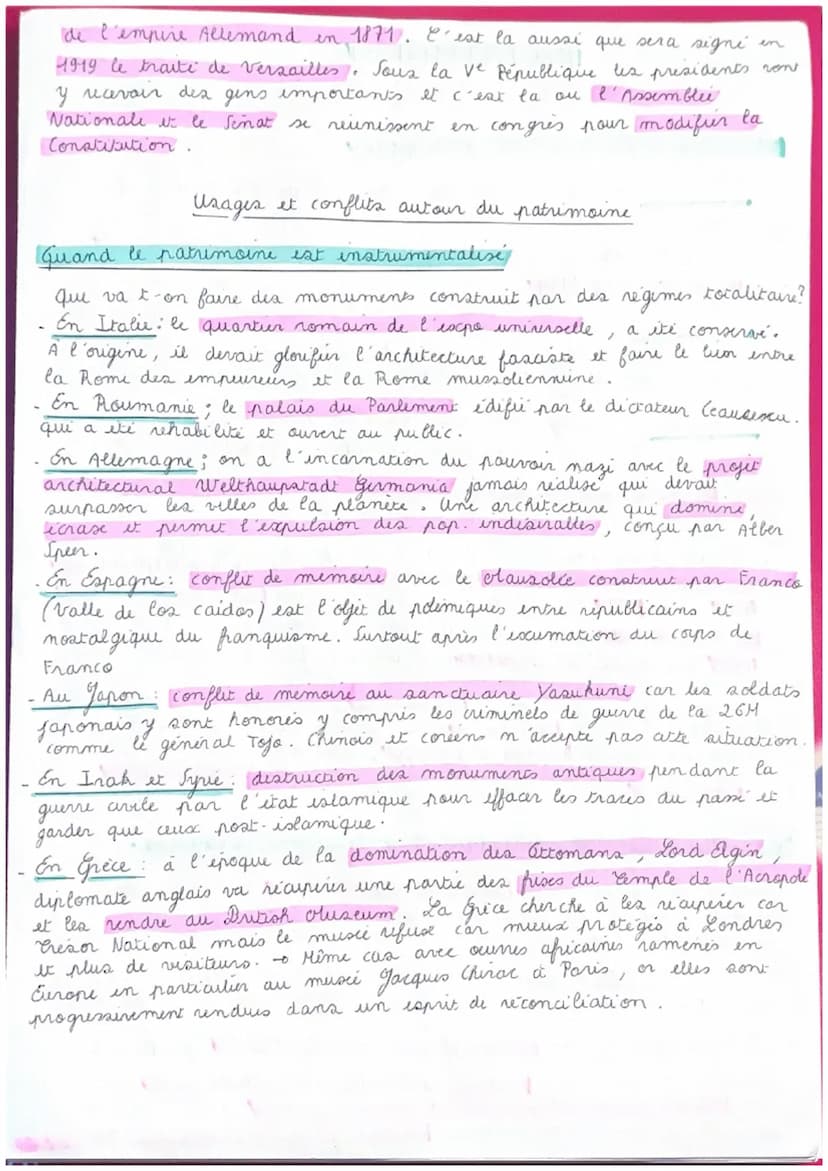 de l'empire Allemand en 1871. C'est la aussi que sera signé en
1919 le traité de Versailles. Sous la Ve République les présidents vont
y recevoir des gens importants et c'est la ou l'Assemblée
Nationale et le Sénat se réunissent en congrès pour modifier la
Constitution.
Usages et conflits autour du patrimoine
Quand le patrimoine est instrumentalisé
Que va t-on faire des monuments construit par des régimes totalitaire?
- En Italie: le quartier romain de l'expo universelle, a été conservé.
À l'origine, il devait glorifier l'architecture fasciste et faire le lien entre
la Rome des empereurs et la Rome mussolinienne.
- En Roumanie; le palais du Parlement édifié par le dictateur Ceausescu.
qui a été réhabilité et ouvert au public.
- En Allemagne; on a l'incarnation du pouvoir nazi avec le projet
architectural Welthaupstadt Germania jamais réalisé qui devait
surpasser les villes de la planète. Une architecture qui domine,
écrase et permet l'expulsion des pop. indésirables, conçu par Alber
Speer.
- En Espagne: conflit de mémoire avec le Mausolée construit par Franco
(Valle de los caidos) est l'objet de polémiques entre républicains et
nostalgique du franquisme. Surtout après l'exumation du corps de
Franco
- Au Japon: conflit de mémoire au sanctuaire Yasukuni car les soldats
japonais y sont honorés y compris les criminels de guerre de la 2GM
comme le général Tojo. Chinois et coréens n'accepte pas cette situation.
- En Irak et Syrie: destruction des monuments antiques pendant la
guerre civile par l'état islamique pour effacer les traces du passé et
garder que ceux post-islamique.
- En Grèce: à l'époque de la domination des Ottomans, Lord Elgin,
diplomate anglais va récupérer une partie des frises du temple de l'Acropole
et les rendre au British Museum. La Grèce cherche à les récupérer car
Trésor National mais le musée refuse car mieux protégés à Londres
et plus de visiteurs. → Même cas avec œuvres africaines ramenés en
Europe en particulier au musée Jacques Chirac à Paris, or elles sont
progressivement rendues dans un esprit de réconciliation.